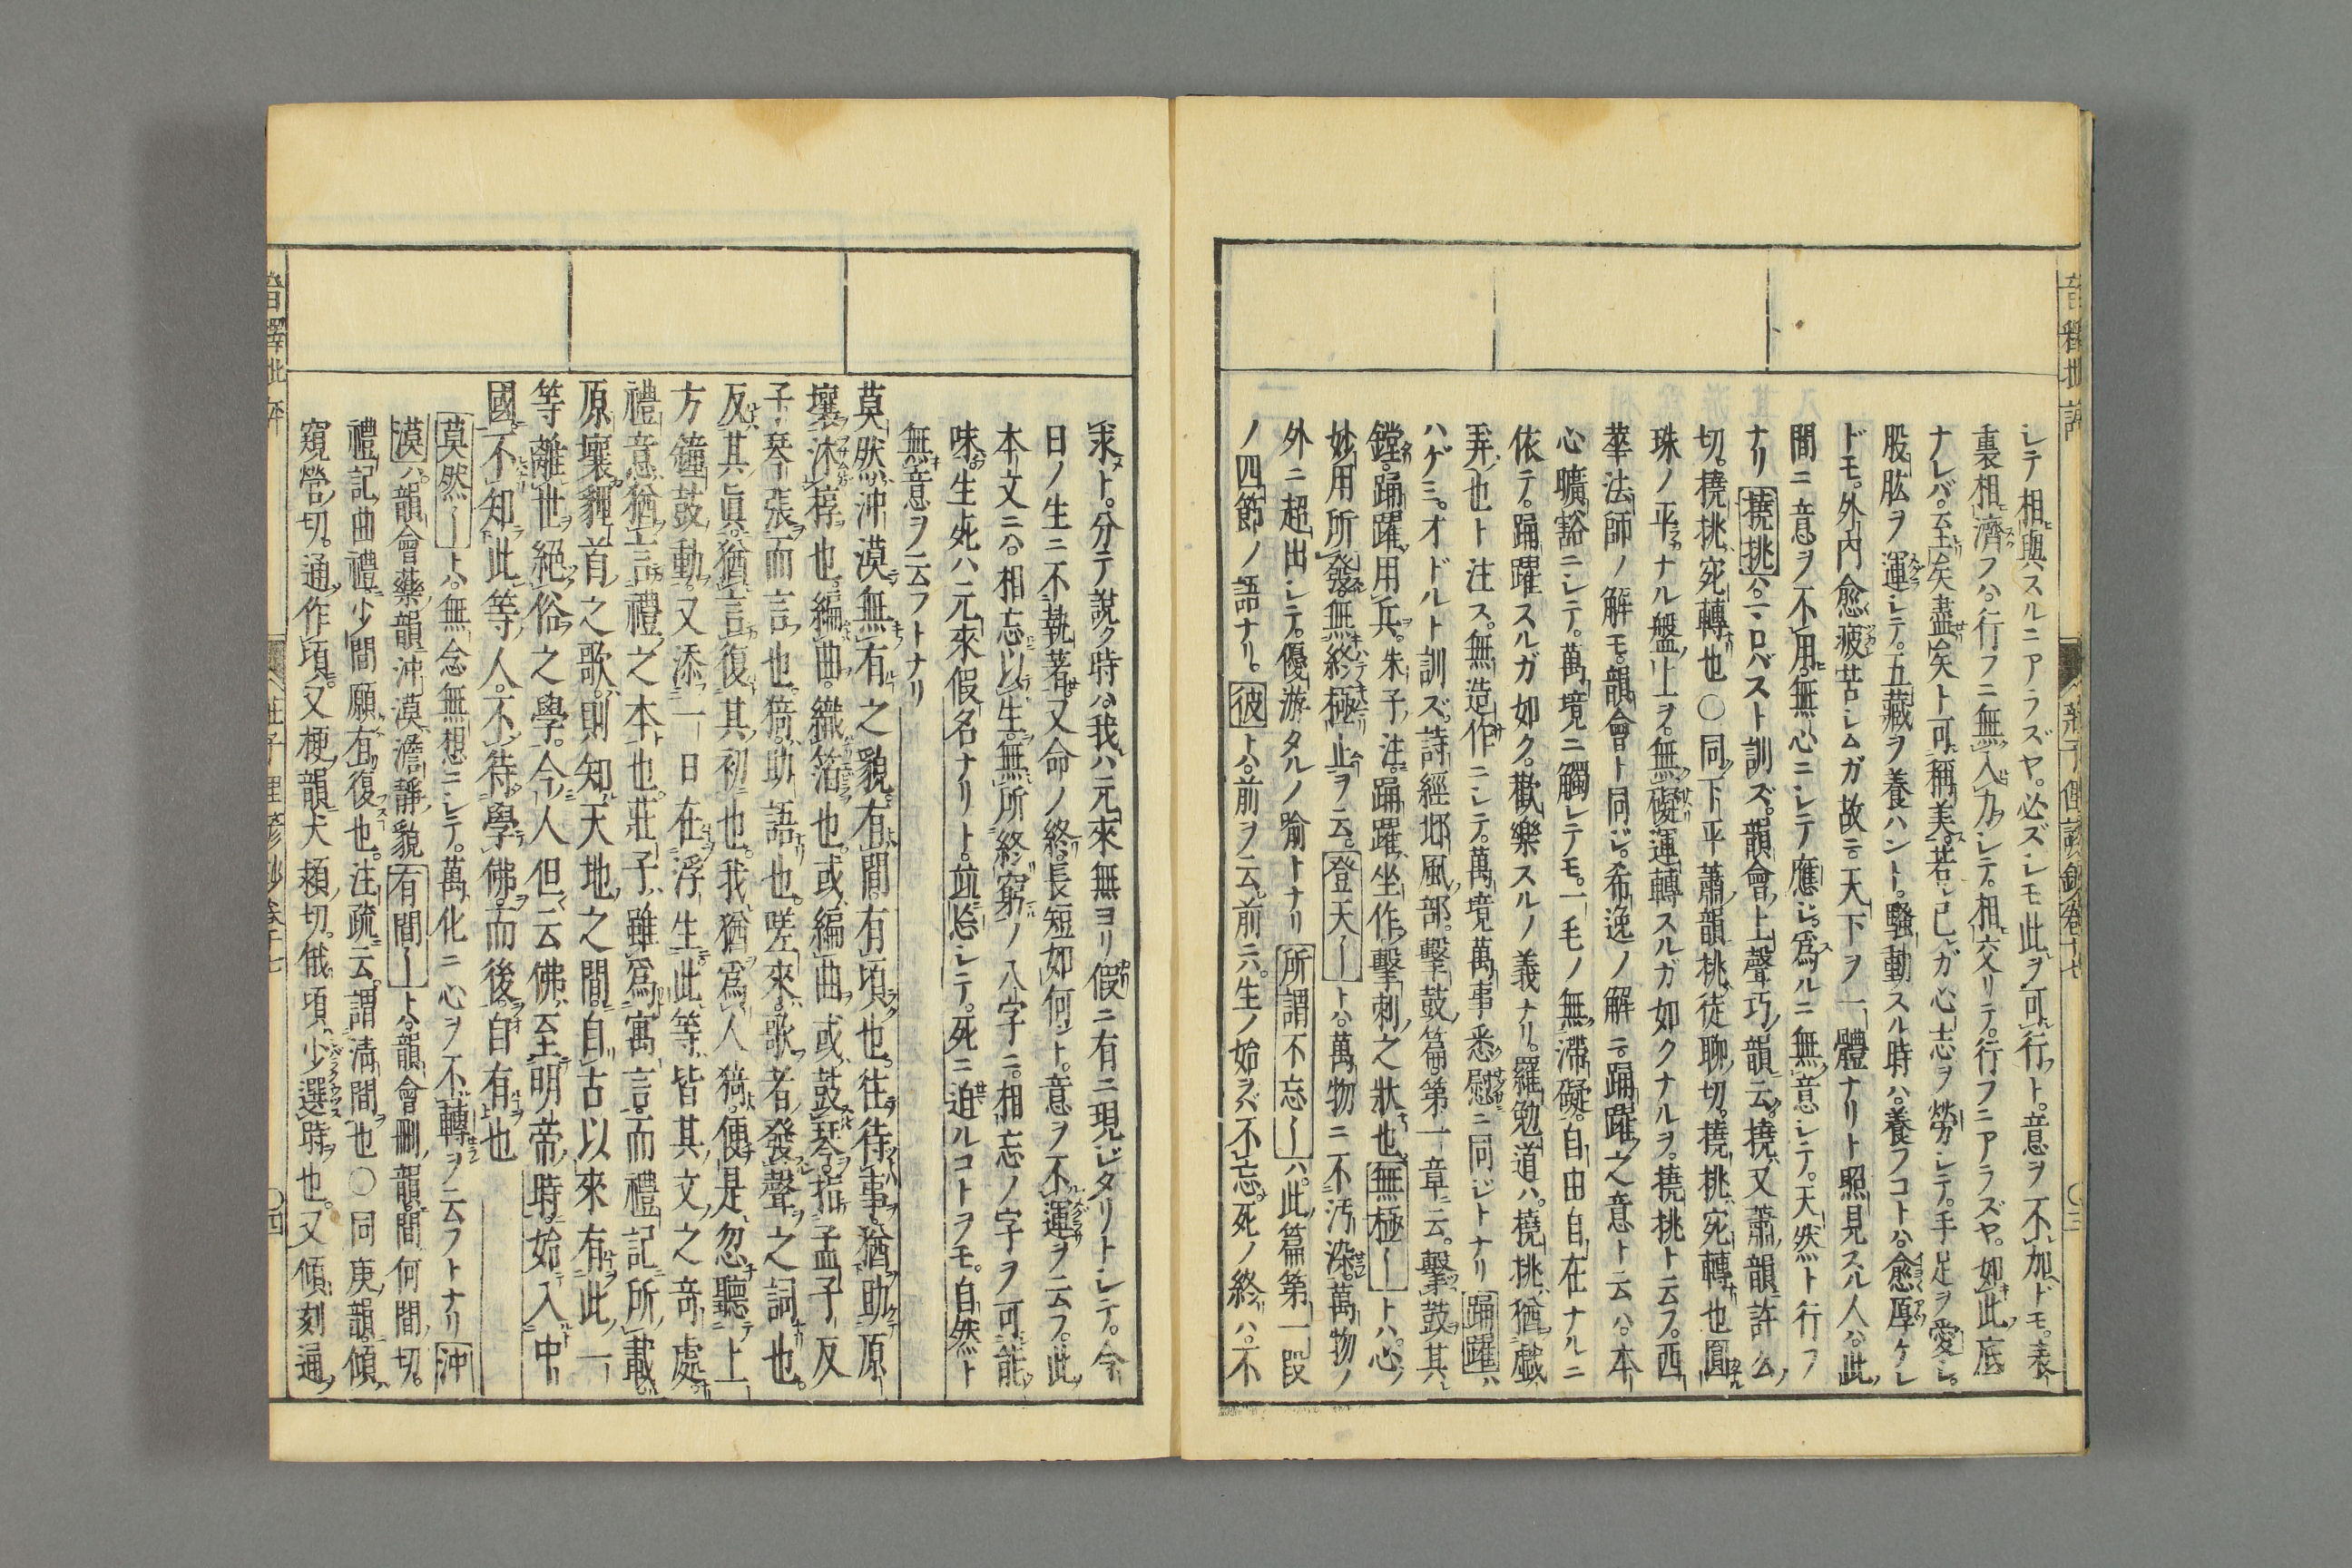 シテ相與スルニアラズヤ。必ズシモ此ヲ可行ト。意ヲ不加ドモ。表
裏相濟フハ。行フニ無入力シテ。相交リテ。行フニアラズヤ。如此底
ナレバ。至矣盡矣ト可稱美。若シ己レガ心志ヲ勞シテ。手足ヲ愛シ。
股肱ヲ運シテ。五藏ヲ養ハント。騷動スル時ハ。養フコトハ。愈厚ケレ
ドモ。外内愈疲苦シムガ故ニ。天下ヲ一體ナリト照見スル人ハ。此
間ニ意ヲ不用。無心ニシテ應じ。爲ルニ無意シテ。天然ト行フ
ナリ 撓挑ハ。コロバスト訓ズ。韻會上聲巧韻云。撓又蕭韻許么
切。撓挑宛轉也〇同下平蕭韻挑徒聊切。撓挑宛轉也圓
珠ノ平ナル盤上ヲ。無礙運轉スルガ如クナルヲ。撓挑ト云フ。西
華法師ノ解モ。韻會ト同ジ。希逸ノ解ニ。踊躍之意ト云ハ。本
心曠豁ニシテ。萬境ニ觸レテモ。一毛ノ無滯礙。自由自在ナルニ
依テ。踊躍スルガ如ク。歡樂スルノ義ナリ。羅勉道ハ。撓挑猶戲
弄也ト注ス。無造作ニシテ。萬境萬事悉慰ニ同ジトナリ 踊躍ハ
ハゲミ。オドルト訓ズ。詩經邶風部。擊鼓篇。第一章云。擊鼓其
鏜。踊躍用兵。朱子注。踊躍坐作擊刺之狀也 無極—トハ。心ノ
妙用所發。無終極止ヲ云。 登天—トハ。萬物ニ不汚染。萬物ノ
外ニ超出シテ。優游タルノ喻トナリ 所謂不忘—ハ。此篇第一段
ノ四節ノ語ナリ。 彼トハ。前ヲ云。前ニハ。生ノ始ヲバ不忘。死ノ終ハ。不
求ト。分テ說ク時ハ。我ハ元來無ヨリ假ニ有ニ現ジタリトシテ。今
日ノ生ニ不執著。又命ノ終。長短如何ト。意ヲ不運ヲ云フ。此
本文ニハ。相忘以生。無所終窮ノ八字ニ。相忘ノ字ヲ可能
味。生死ハ元來假名ナリト。竝忘シテ。死ニ迫ルコトヲモ。自然ト
無意ヲ云フトナリ
莫然沖漠無有之貌。有間。有頃也。往待事。猶助原
壤沐椁也。編曲。織箔也。或編曲或鼓琴。指孟子反
子琴張而言也。猗。助語也。嗟來。歌者發聲之詞也。
反其眞。猶言復其初也。我猶爲人猗。便是忽聽上
方鐘鼓動。又添一日在浮生。此等皆其文之奇處。
禮意猶言禮之本也。莊子雖爲寓言。而禮記所載
原壤貍首之歌。則知天地之間。自古以來有此一
等離世絕俗之學。今人但云佛至明帝時。始入中
國。不知此等人。不待學佛。而後自有也
莫然—トハ。無念無想ニシテ。萬化ニ心ヲ不轉ヲ云フトナリ 沖
漠ハ。韻會藥韻沖漠澹靜貌 有間—トハ。韻會刪韻間何間切。
禮記曲禮少間願有復也。注疏云。謂淸間也〇同庚韻傾
窺營切。通作頃。又梗韻犬穎切。俄頃少選時也。又傾刻通